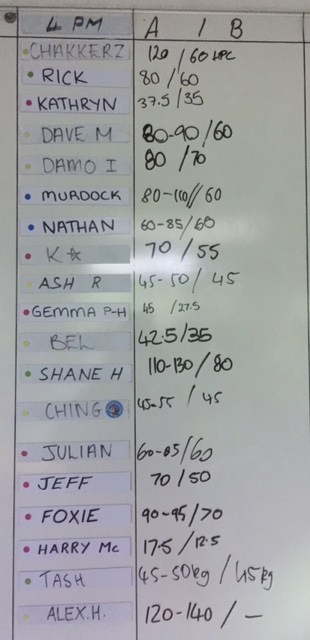 4 PM A / B
CHAKKERZ 120 / 60 HPC
RICK 80 / 60
KATHRYN 37.5 / 35
DAVE M 80-90 / 60
DAMO I 80 / 70
MURDOCK 80-100 // 60
NATHAN 60-85 / 60
K☆ 70 / 55
ASH R 45-50 / 45
GEMMA P-H 45 / 27.5
BEL 42.5 / 35
SHANE H 110-130 / 80
CHING 45-55 / 45
JULIAN 60-85 / 60
JEFF 70 / 50
FOXIE 90-95 / 70
HARRY Mc 17.5 / 12.5
TASH 45-50kg / 45kg
ALEX.H. 120-140 / -